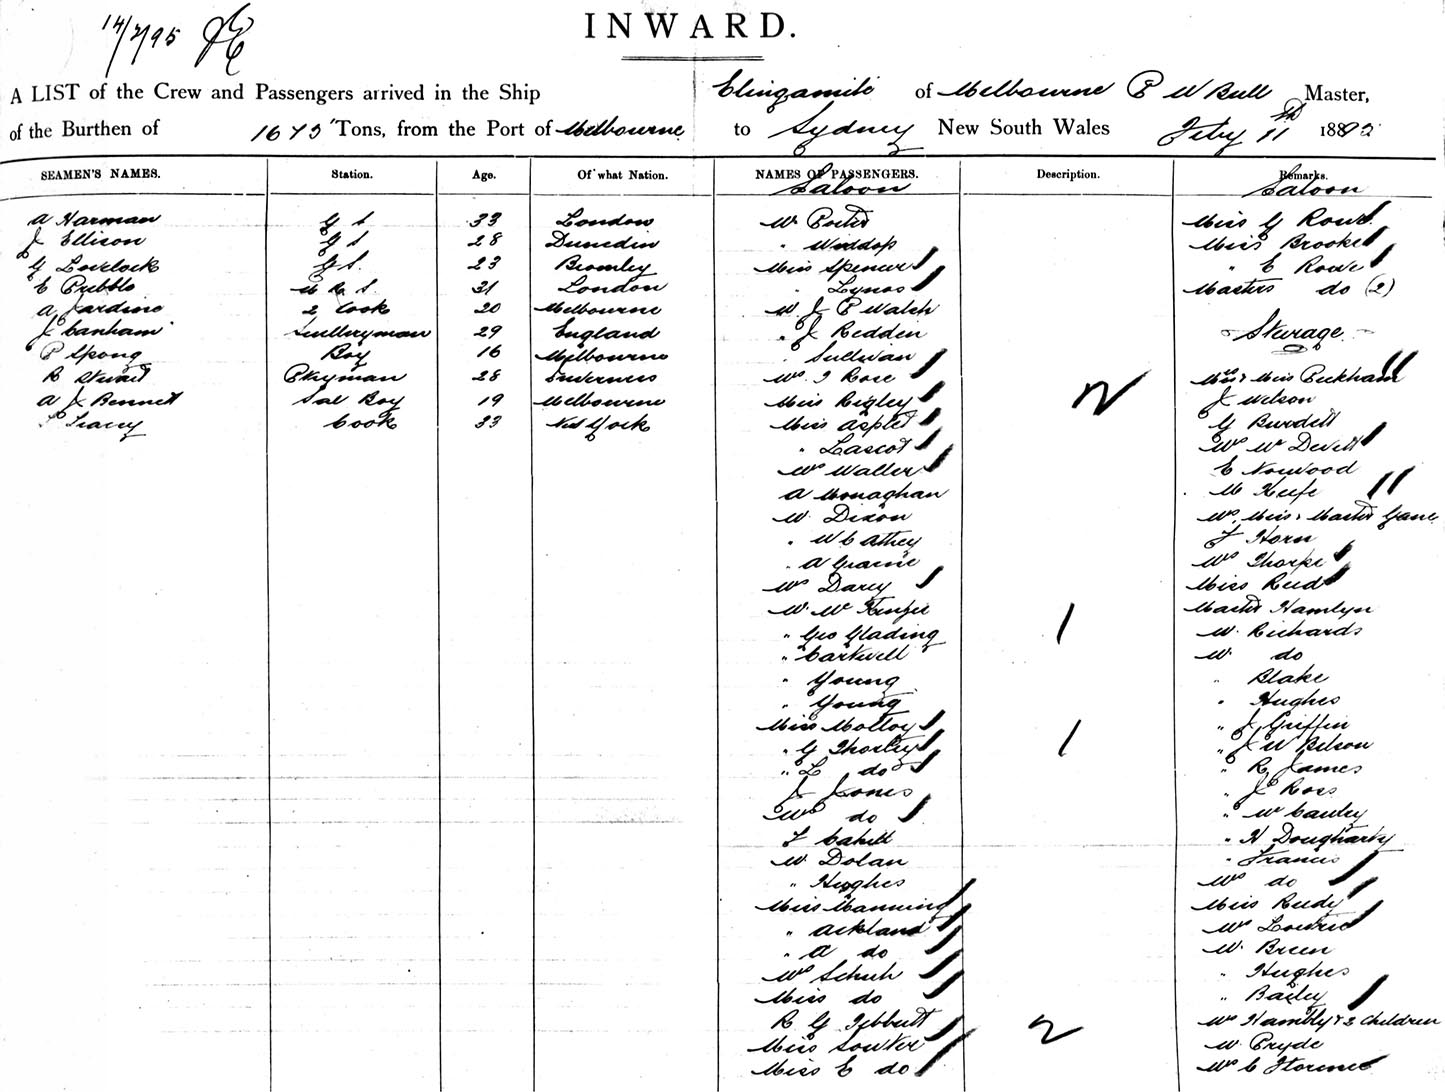 14/2/95
INWARD.
A LIST of the Crew and Passengers arrived in the Ship Elingamite of Melbourne E W Bull Master,
of the Burthen of 1675 Tons, from the Port of Melbourne to Sydney New South Wales Feby 11th 1892
SEAMEN'S NAMES. Station. Age. Of what Nation. NAMES OF PASSENGERS. Description. Remarks.
Saloon Saloon
A Harman G S 33 London
J Ellison G S 28 Dunedin
G Lovelock G S. 23 Bromley
E Pribble M R S. 31 London
A Jardine 2 Cook 20 Melbourne
J Canham Sculleryman 29 England
P Spong Boy 16 Melbourne
R Stuart Ptryman 28 Inverness
A J Bennett Sal Boy 19 Melbourne
Tracey Cook 33 New York
Mr Porter
" Winddop
Miss Spencer
" Lynos
Mr J P Walsh
" J Redden
" Sullivan
Mrs I Rose
Miss Rigley
Miss Asplet
" Lascot
Mrs Waller
A Monaghan
Mr Dixon
" W C Athey
" A Graeme
Mrs Darcy
Mr W
" Geo Glading
" Cartwell
" Young
" Young
Miss Molloy
" G Thorley
" L do
J Jones
Mrs do
T Cahill
Mr Dolan
" Hughes
Miss Manning
" Ackland
" A do
Mrs Schuh
Miss do
R G Tibbutt
Miss Sowter
Miss E do
2
1
1
2
Miss G Rowe
Miss Brooke
" E Rowe
Masters do (2)
Steerage
Mrs & Miss Peckham
J Wilson
G Burdett
Mrs W Devett
E Norwood
M Keefe
Mrs, Miss & Master Gane
F Horn
Mrs Thorpe
Miss Reid
Master Hamlyn
Mr Richards
Mr do
" Blake
" Hughes
" J Griffin
" J W Bilson
" R James
" J Ross
" W Cauley
" H Dougharty
" Francis
Mrs do
Miss Reidy
Mrs Lowrie
Mr Breen
" Hughes
" Bailey
Mrs Hambly & 2 Children
Mr Pryde
Mrs C Florence